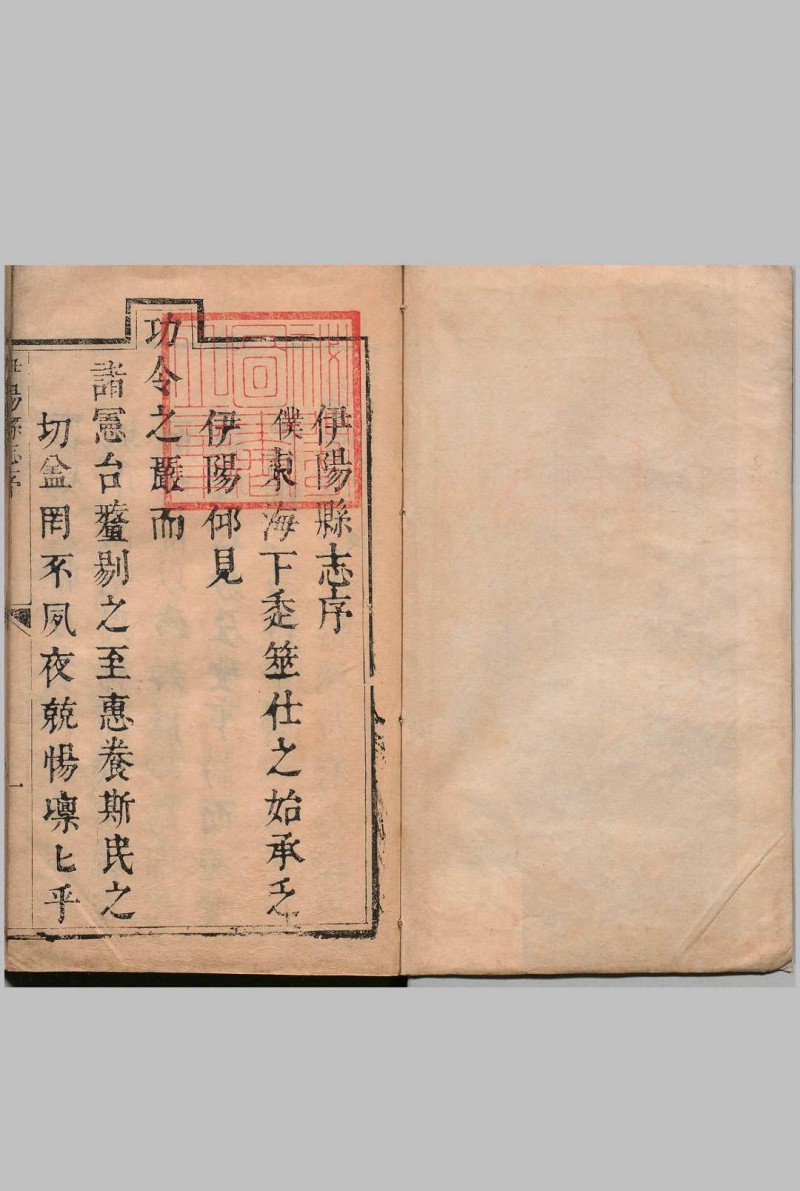 伊陽縣志序
僕東海下走筮仕之始承乏
伊陽仰見
功令之嚴而
諸憲台釐剔之至惠養斯民之
切益罔不夙夜兢惕凛匕乎
伊陽縣志序
一